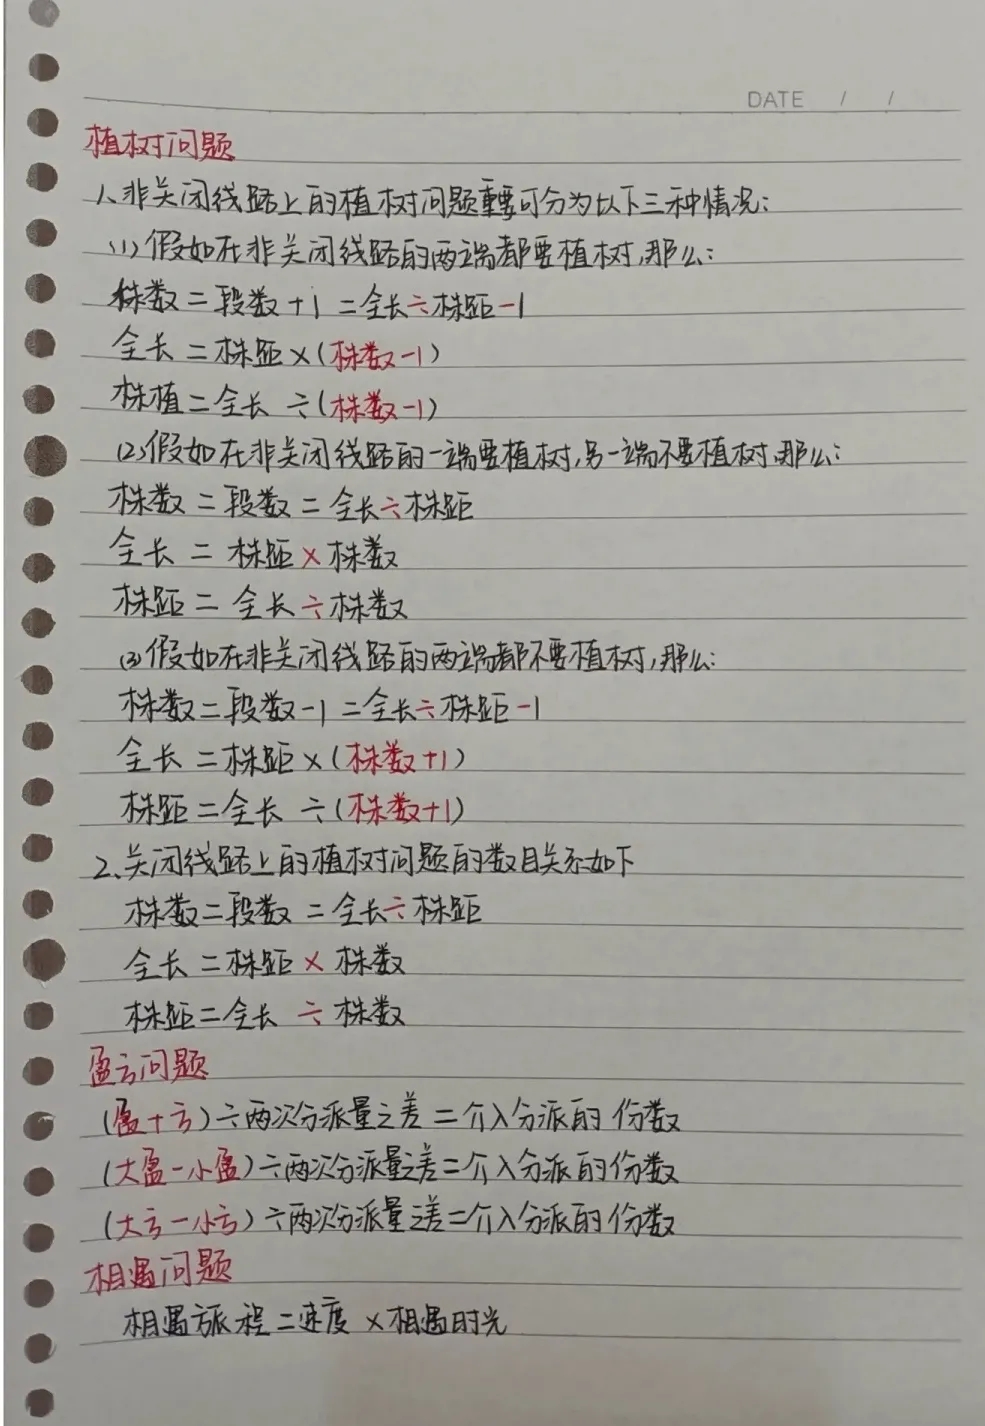 DATE / /
植树问题
1、非关闭线路上的植树问题重要可分为以下三种情况:
(1)假如在非关闭线路的两端都要植树,那么:
株数=段数+1=全长÷株距-1
全长=株距×(株数-1)
株植=全长÷(株数-1)
(2)假如在非关闭线路的一端要植树,另一端不要植树,那么:
株数=段数=全长÷株距
全长=株距×株数
株距=全长÷株数
(3)假如在非关闭线路的两端都不要植树,那么:
株数=段数-1=全长÷株距-1
全长=株距×(株数+1)
株距=全长÷(株数+1)
2、关闭线路上的植树问题的数目关系如下
株数=段数=全长÷株距
全长=株距×株数
株距=全长÷株数
盈亏问题
(盈+亏)÷两次分派量之差=介入分派的份数
(大盈-小盈)÷两次分派量之差=介入分派的份数
(大亏-小亏)÷两次分派量之差=介入分派的份数
相遇问题
相遇旅程=速度×相遇时光